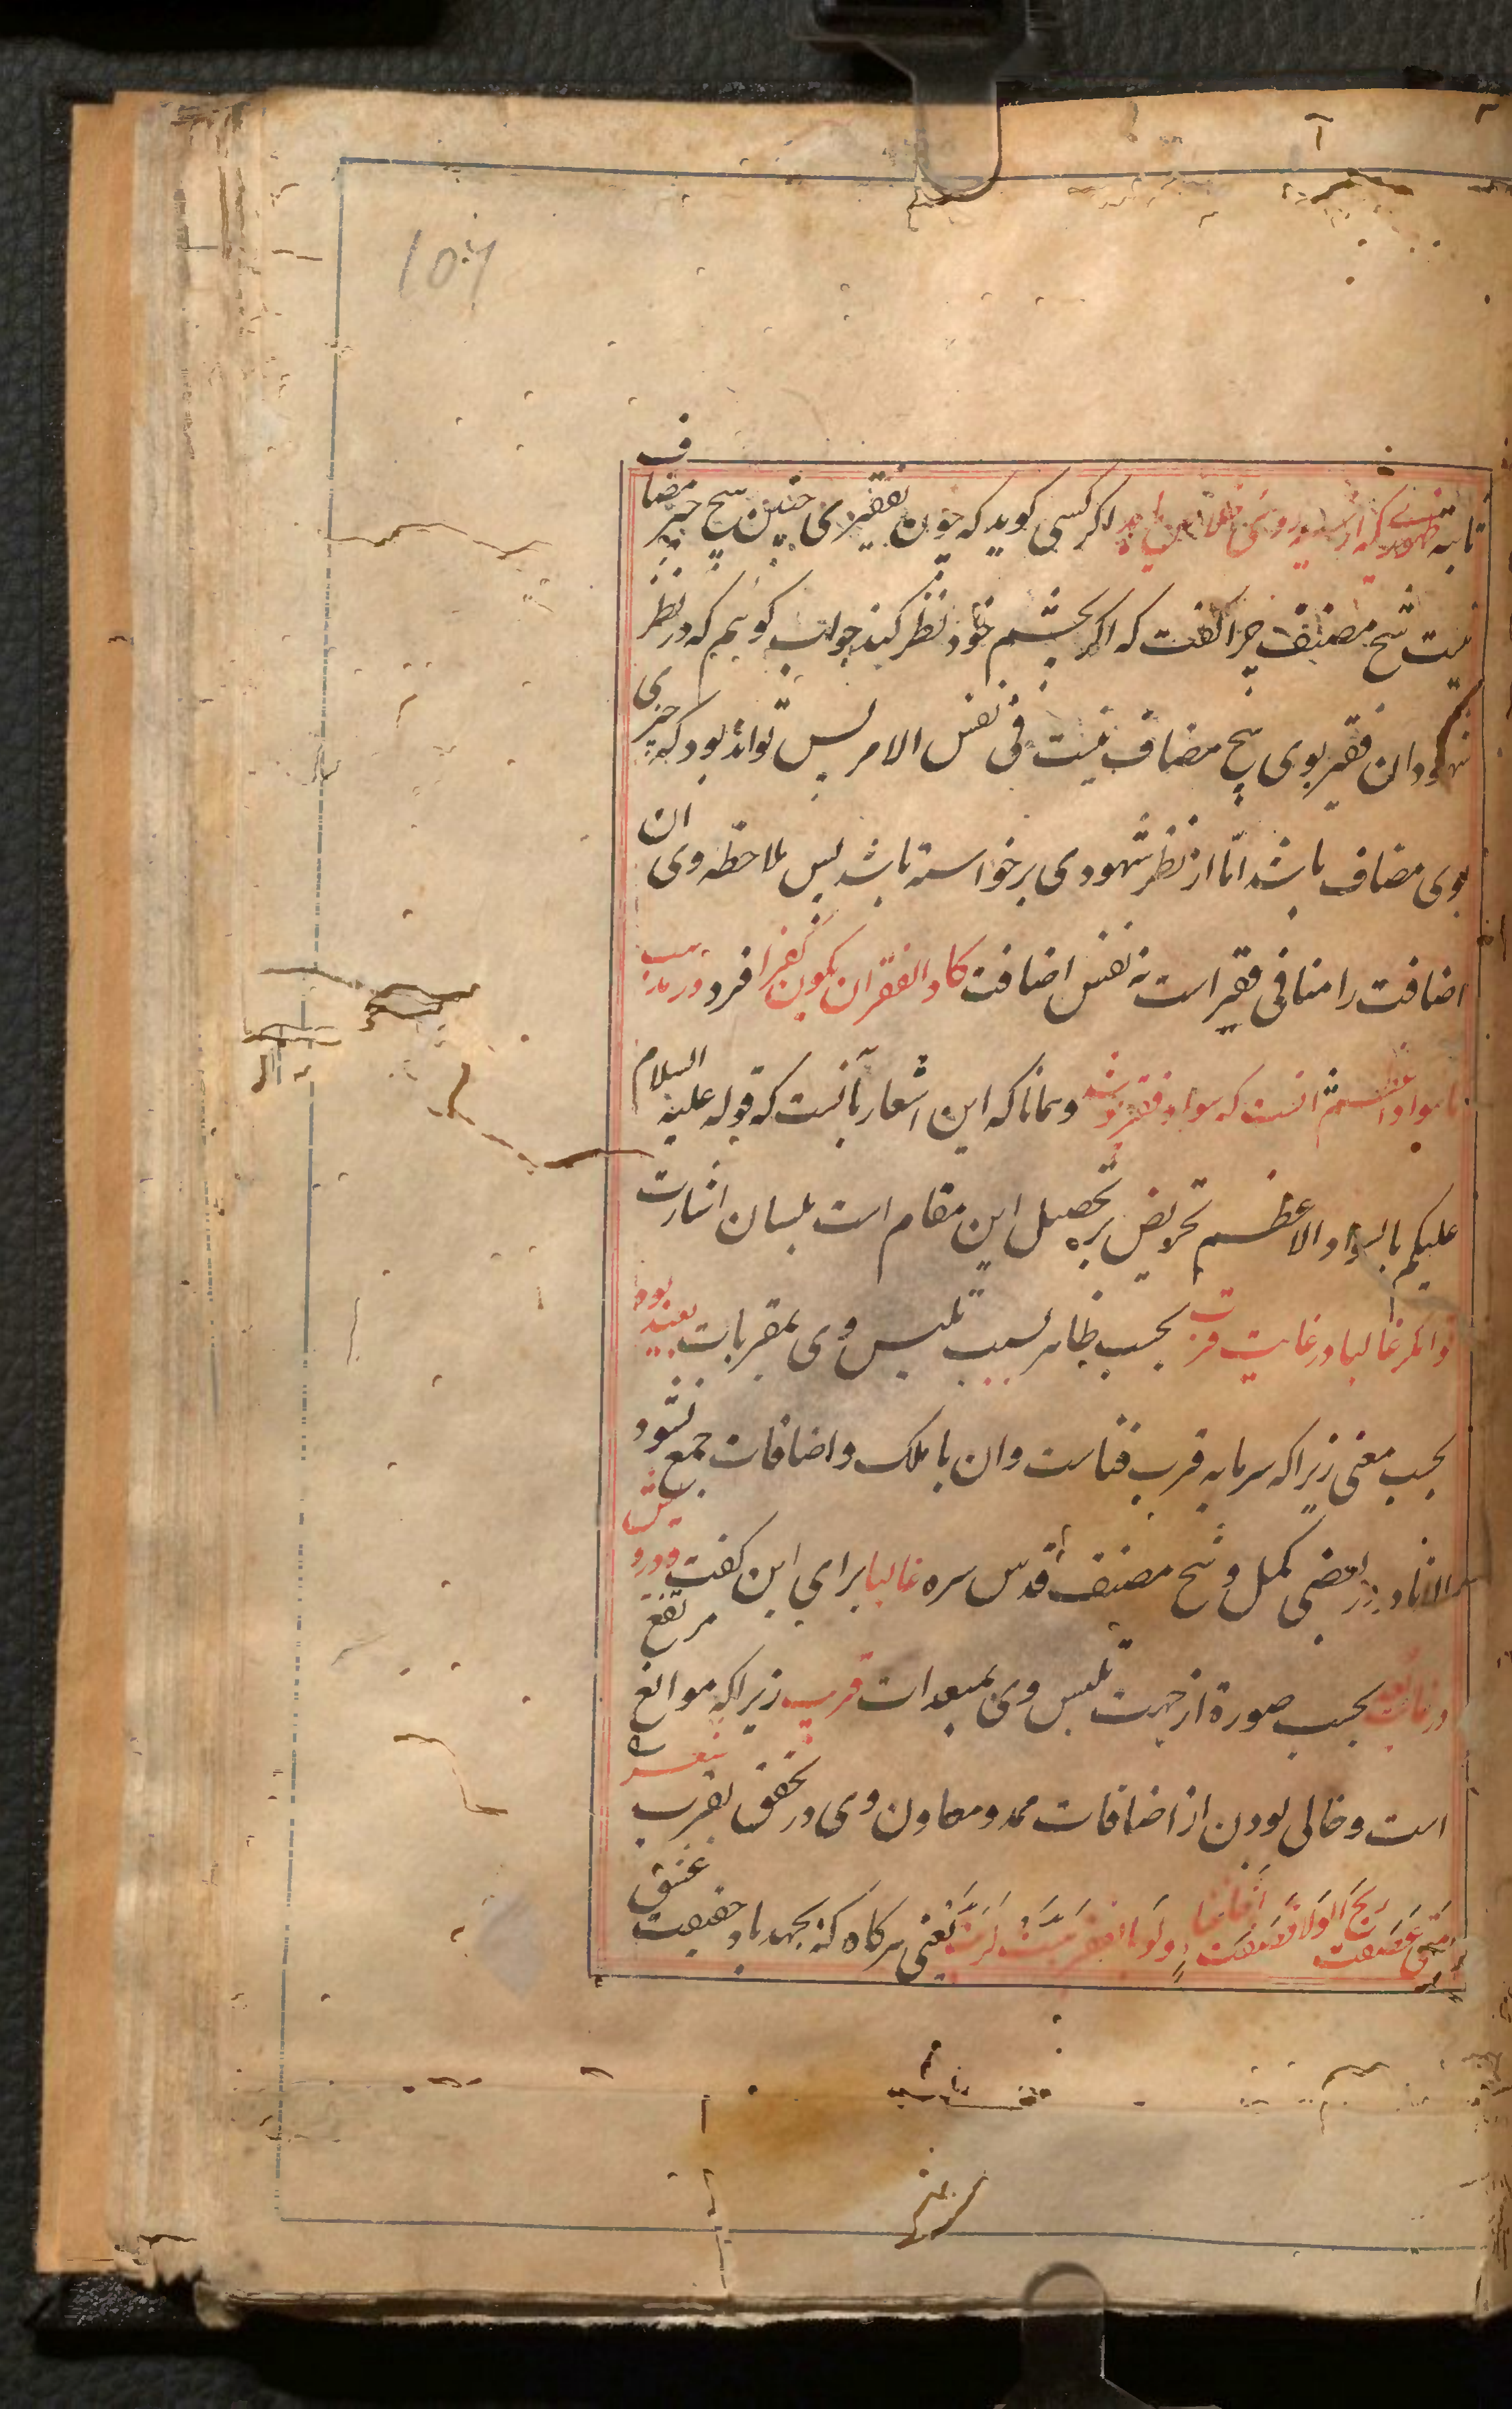 107
تا بته ظهورے که از اگر کسی کوید که چون بفقیری چنین هیچ چیز مضاف
نیست شیخ مصنف چرا کفت که اکر بچشم خود نظر کند جواب کوئیم که در نظر
شهود ان فقیر بوی هیچ مضاف نیست فی نفس الامر پس تواند بود که چیزی
بوی مضاف باشد امّا از نظر شهود وی برخواسته باشد پس ملاحظه وی ان
اضافت را منافی فقیر است نه نفس اضافت کاد الفقر ان یکون کفرا افرد در مذهب
ما سواد اعظم انست که سواد فقر پوشد و همانا که این اشعار بآنست که قوله علیه السلام
علیکم بالسواد الاعظم تحریض بر تحصیل این مقام است بلسان اشارت
توانکر غالبا در غایت قربت بحسب ظاهر بسبب تلبس وی بمقربات بعید بود
بحسب معنی زیرا که سرمایه قرب فناست وان با ملک و اضافات جمع نشود
الا نادر در بعضی کمل و شیخ مصنف قدس سره غالبا برای این کفت و درویش
در غایت بعد بحسب صورة از جهت تلبس وی بمبعدات قریب زیرا که موانع مرتفع
است و خالی بودن از اضافات ممد و معاون وی در تحقق بقرب شعر
متی عصفت ریح الولا قصفت اخا غنا ولو بالفقر هبت لربت یعنی هرکاه که بجهد باد حقیقت عشق